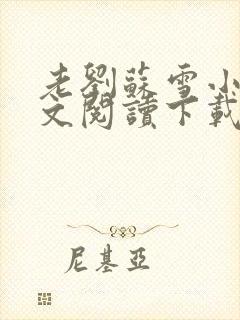 老劉蘇雪小
文閱讀下載
尼基亞